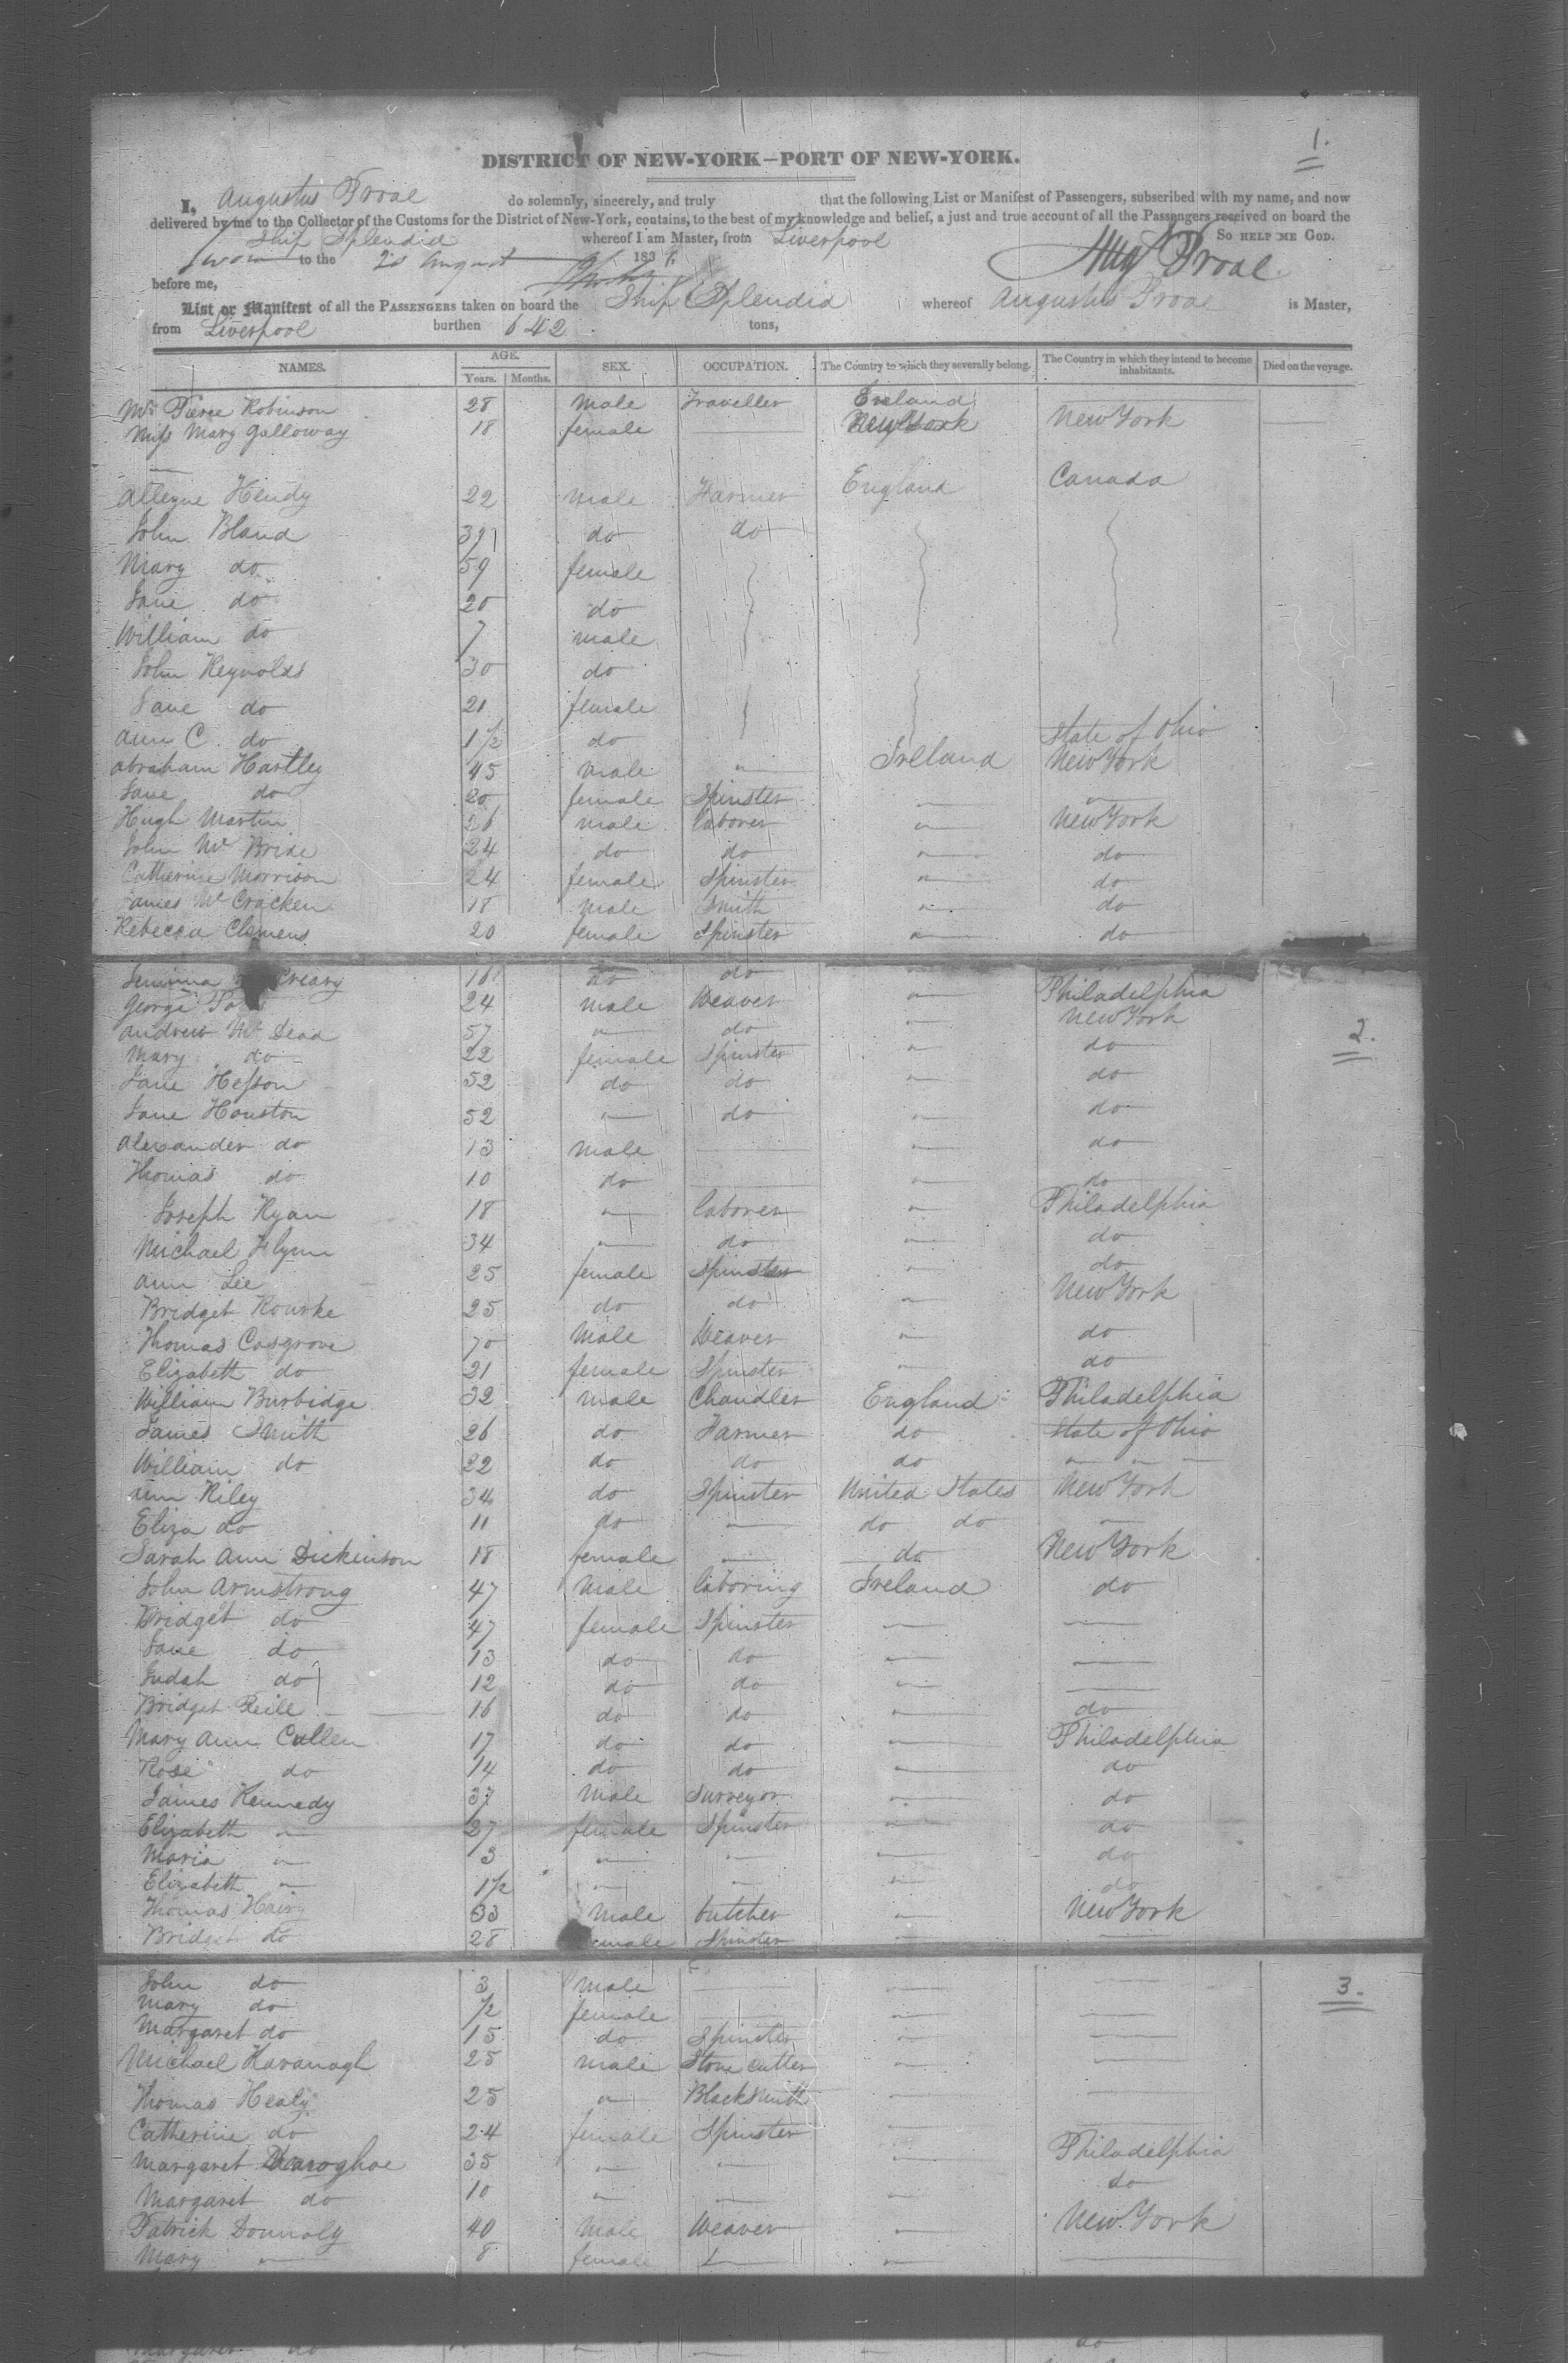 1.
DISTRICT OF NEW-YORK—PORT OF NEW-YORK.
I, Augustus Proal do solemnly, sincerely, and truly that the following List or Manifest of Passengers, subscribed with my name, and now
delivered by me to the Collector of the Customs for the District of New-York, contains, to the best of my knowledge and belief, a just and true account of all the Passengers received on board the
Ship Splendid whereof I am Master, from Liverpool So HELP ME GOD.
Sworn to the August 183 Aug Proal
before me,
List or Manifest of all the PASSENGERS taken on board the Ship Splendid whereof Augustus Proal is Master,
from Liverpool burthen 642 tons,
NAMES. AGE. Years. Months. SEX. OCCUPATION. The Country to which they severally belong. The Country in which they intend to become inhabitants. Died on the voyage.
Mr Pierce Robinson 28 Male Traveller
Miss Mary Galloway 18 female — New York New York —
Alleyne Hendy 22 Male Farmer England Canada
John Bland 39 do do
Mary do 59 female
Jane do 20 do
William do 7 male
John Reynolds 30 do
Jane do 21 female
Ann C. do 1½ do State of Ohio
Abraham Hartley 45 Male " Ireland New York
Jane do 20 female Spinster " "
Hugh Martin 26 male laborer " New York
John Mc Bride 24 do do " do
Catherine Morrison 24 female Spinster " do
James Mc Cracken 18 Male Smith " do
Rebecca Clemens 20 female Spinster " do
Jemima creary 16 do do "
George 24 Male Weaver " Philadelphia
Andrew Mc Dead 57 " do " New York
2.
Mary do 22 female Spinster " do
Jane Hesson 52 do do " do
Jane Houston 52 " do " do
Alexander do 13 Male — " do
Thomas do 10 do — " do
Joseph Ryan 18 " laborer " Philadelphia
Michael Flynn 34 " do " do
Ann Lee 25 female Spinster " do
Bridget Rourke 25 do do " New York
Thomas Cosgrove 70 Male Weaver " do
Elizabeth do 21 female Spinster " do
William Burbidge 32 Male Chandler England Philadelphia
James Smith 26 do Farmer do State of Ohio
William do 22 do do do " " "
Ann Riley 34 do Spinster United States New York
Eliza do 11 do " do do "
Sarah Ann Dickinson 18 female — do New York
John Armstrong 47 Male laboring Ireland do
Bridget do 47 female Spinster " —
Jane do 13 do do " —
Judah do 12 do do " —
Bridget Reile 16 do do " do
Mary Ann Cullen 17 do do " Philadelphia
Rose do 14 do do " do
James Kennedy 37 Male Surveyor " do
Elizabeth " 27 female Spinster " do
Maria " 3 " " " do
Elizabeth " 1½ " " " do
Thomas 33 Male butcher " New York
Bridget do 28 female Spinster " —
John do 3 Male — — —
3.
Mary do ½ female — " —
Margaret do 15 do Spinster " —
Michael Kavanagh 25 Male Stone cutter " —
Thomas Healy 25 " Blacksmith — —
Catherine do 24 female Spinster — —
Margaret 35 " " — Philadelphia
Margaret do 10 " — — do
Patrick Donnoly 40 Male Weaver " New York
Mary " 8 female — " —
Margaret do " " — — do